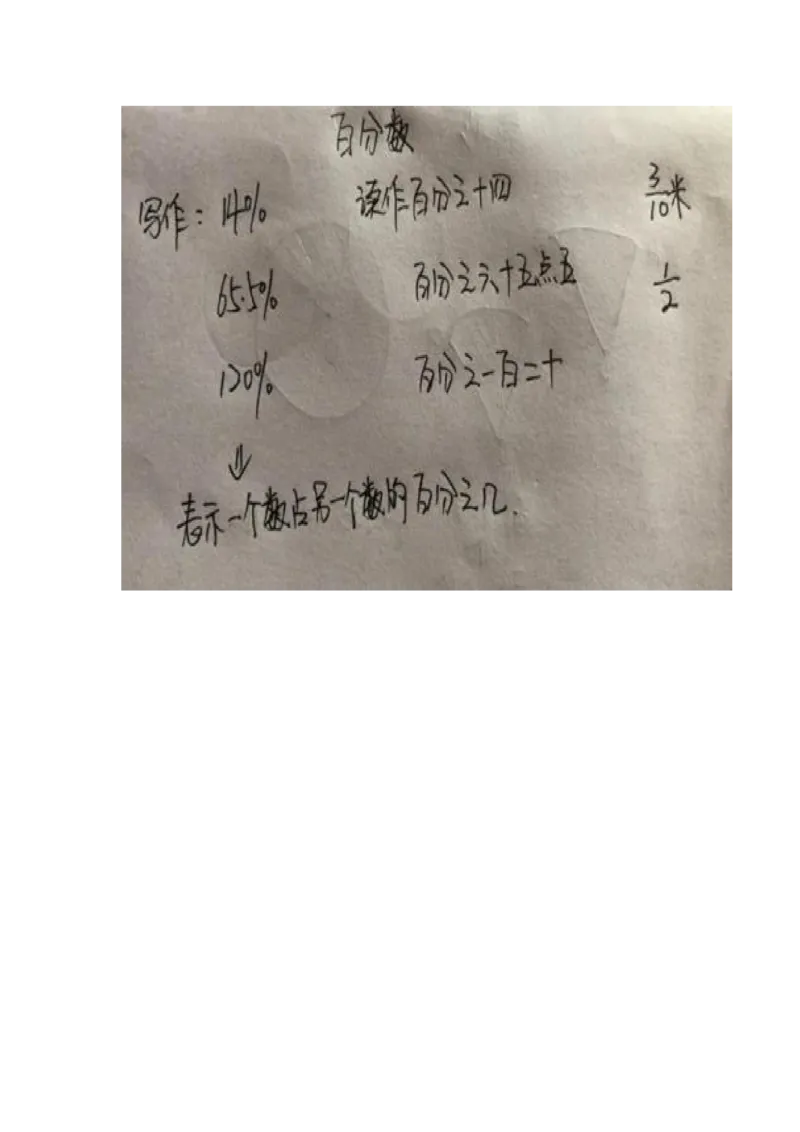 百分数
写作：14% 读作百分之十四 3/10米
65.5% 百分之六十五点五 1/2
120% 百分之一百二十
⇓
表示一个数占另一个数的百分之几.